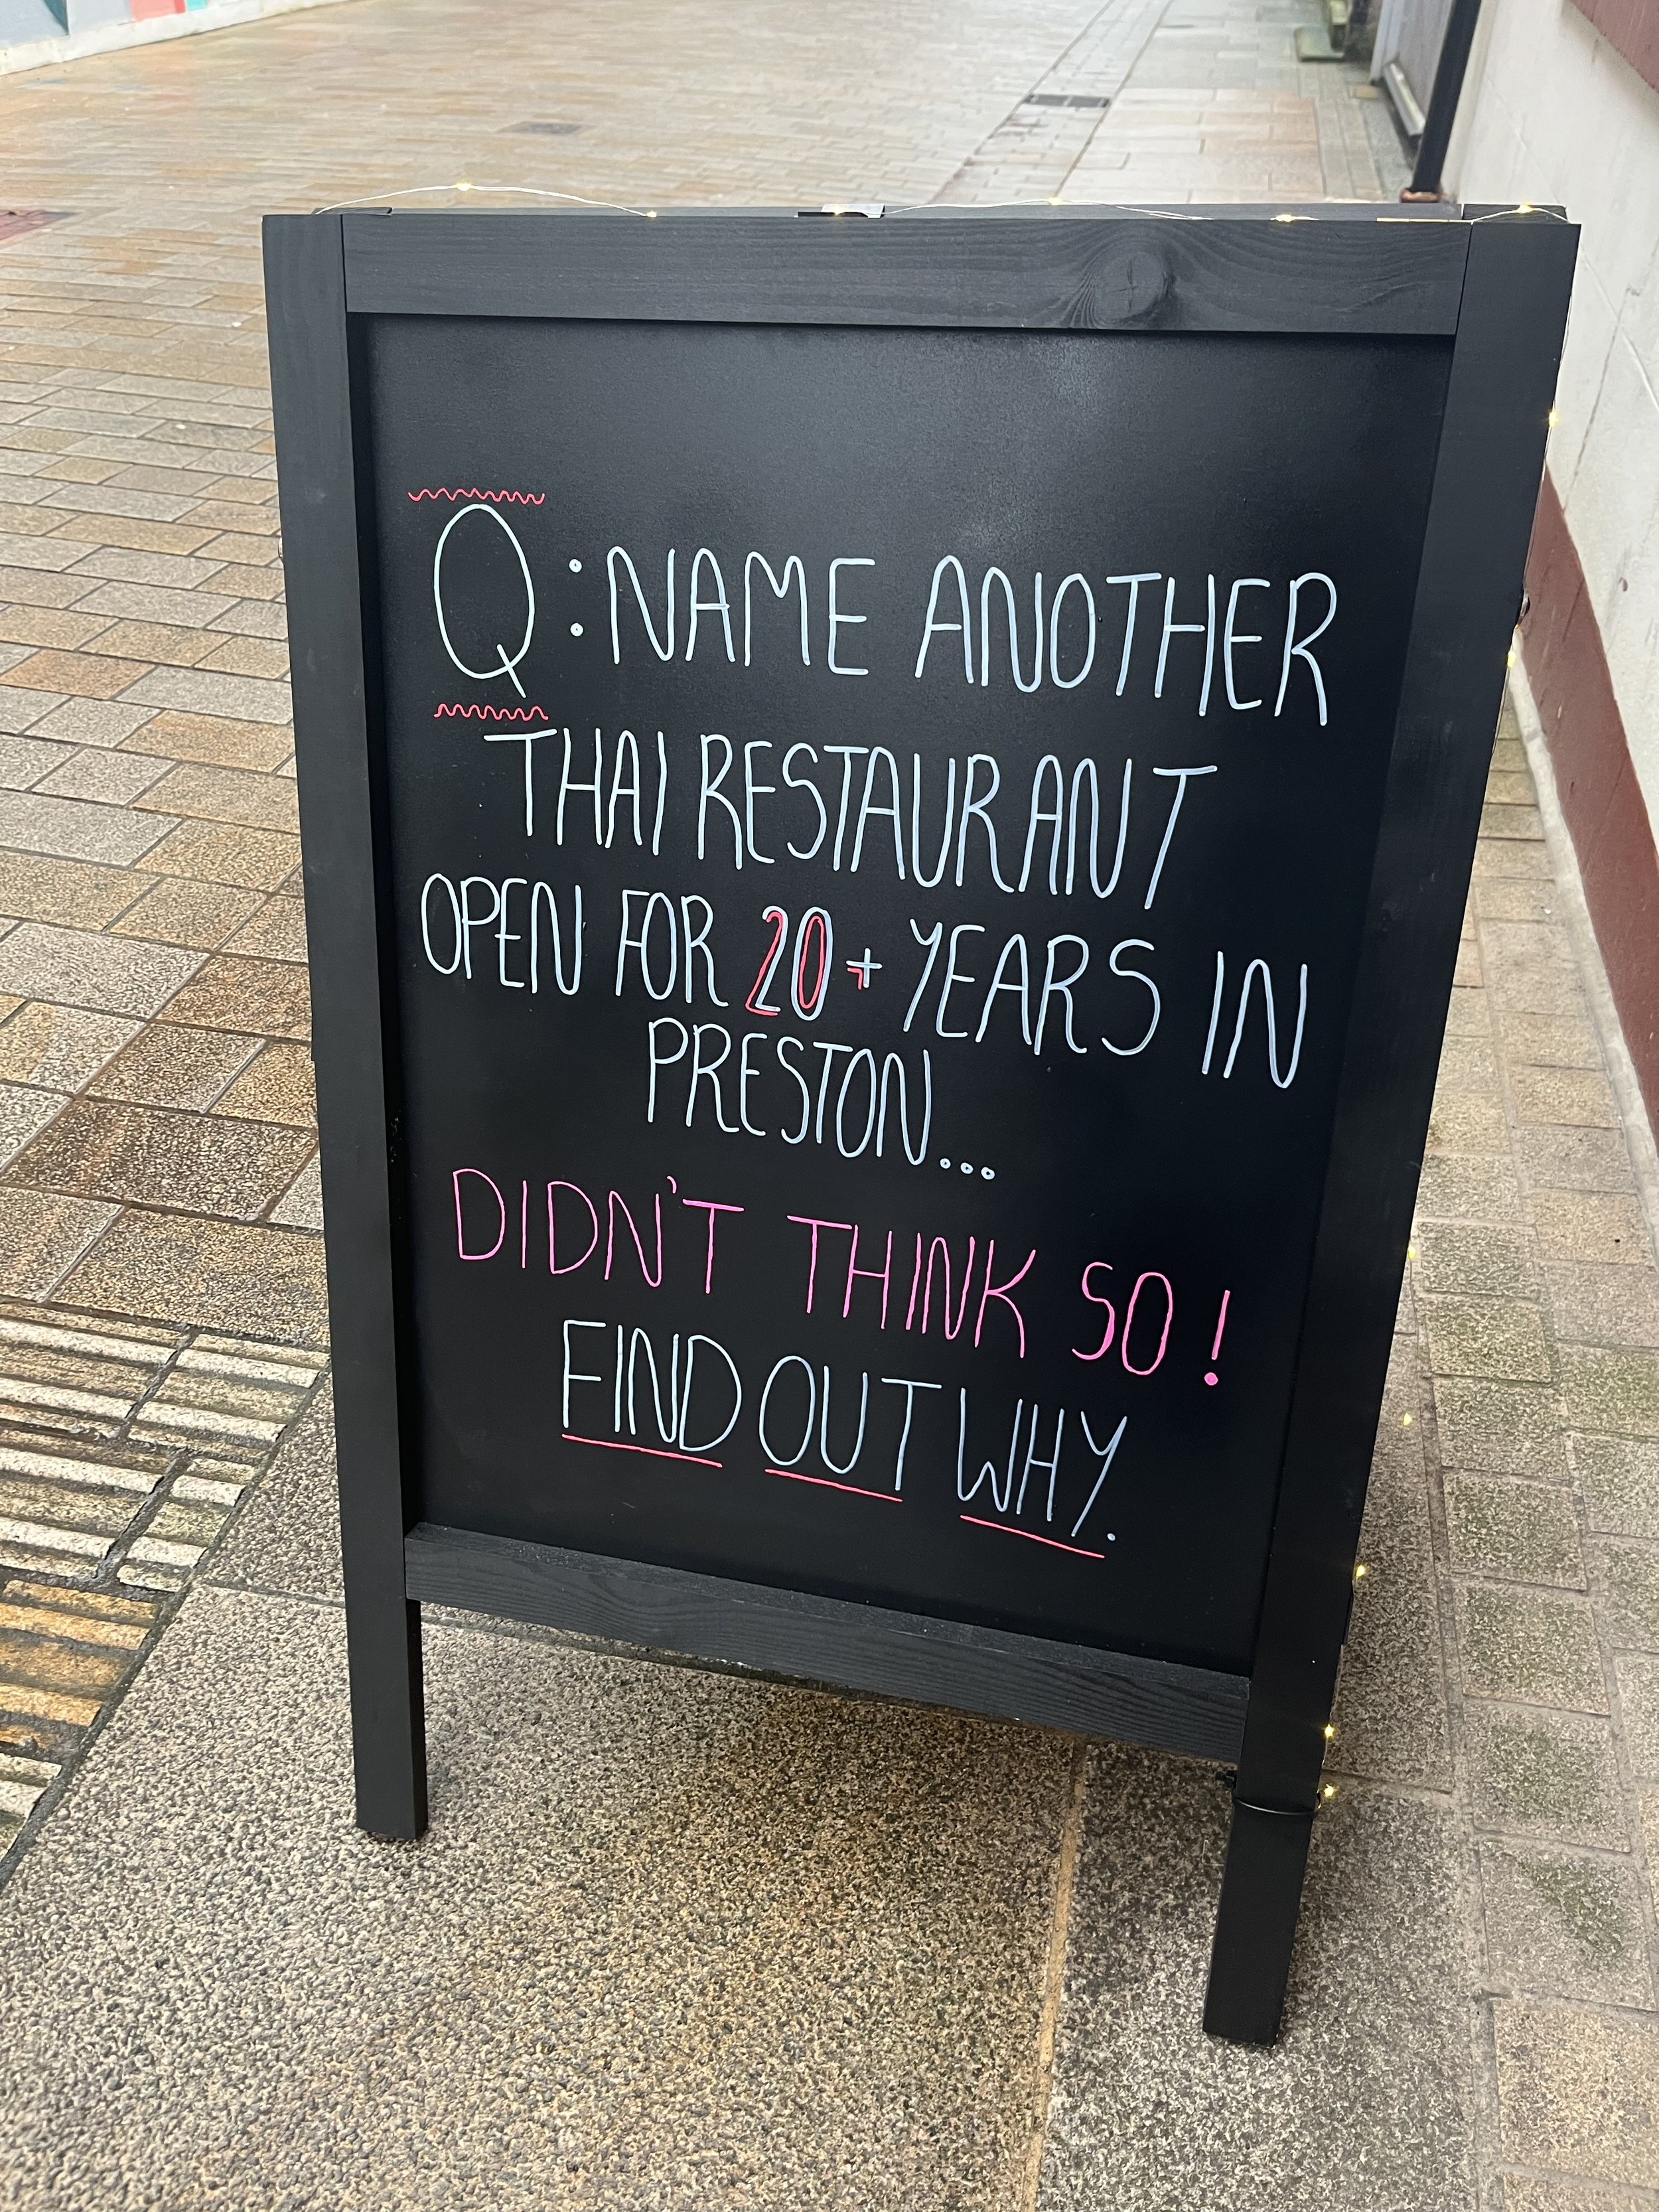 Q: NAME ANOTHER
THAI RESTAURANT
OPEN FOR 20+ YEARS IN
PRESTON...
DIDN'T THINK SO!
FIND OUT WHY.